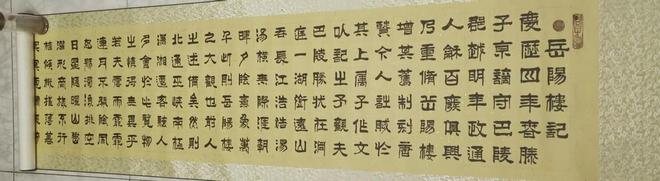 岳陽樓記
慶曆四年春滕
子京謫守巴陵
郡越明年政通
人龢百廢俱興
乃重脩岳陽樓
增其舊制刻唐
賢今人詩賦於
其上屬予作文
以記之予觀夫
巴陵勝狀在洞
庭一湖銜遠山
吞長江浩浩湯
湯橫無際涯朝
暉夕陰氣象萬
千此則岳陽樓
之大觀也前人
之述備矣然則
北通巫峽南極
瀟湘遷客騷人
多會於此覽物
之情得無異乎
若夫霪雨霏霏
連月不開陰風
怒號濁浪排空
日星隱曜山岳
潛形商旅不行
檣傾楫摧薄暮